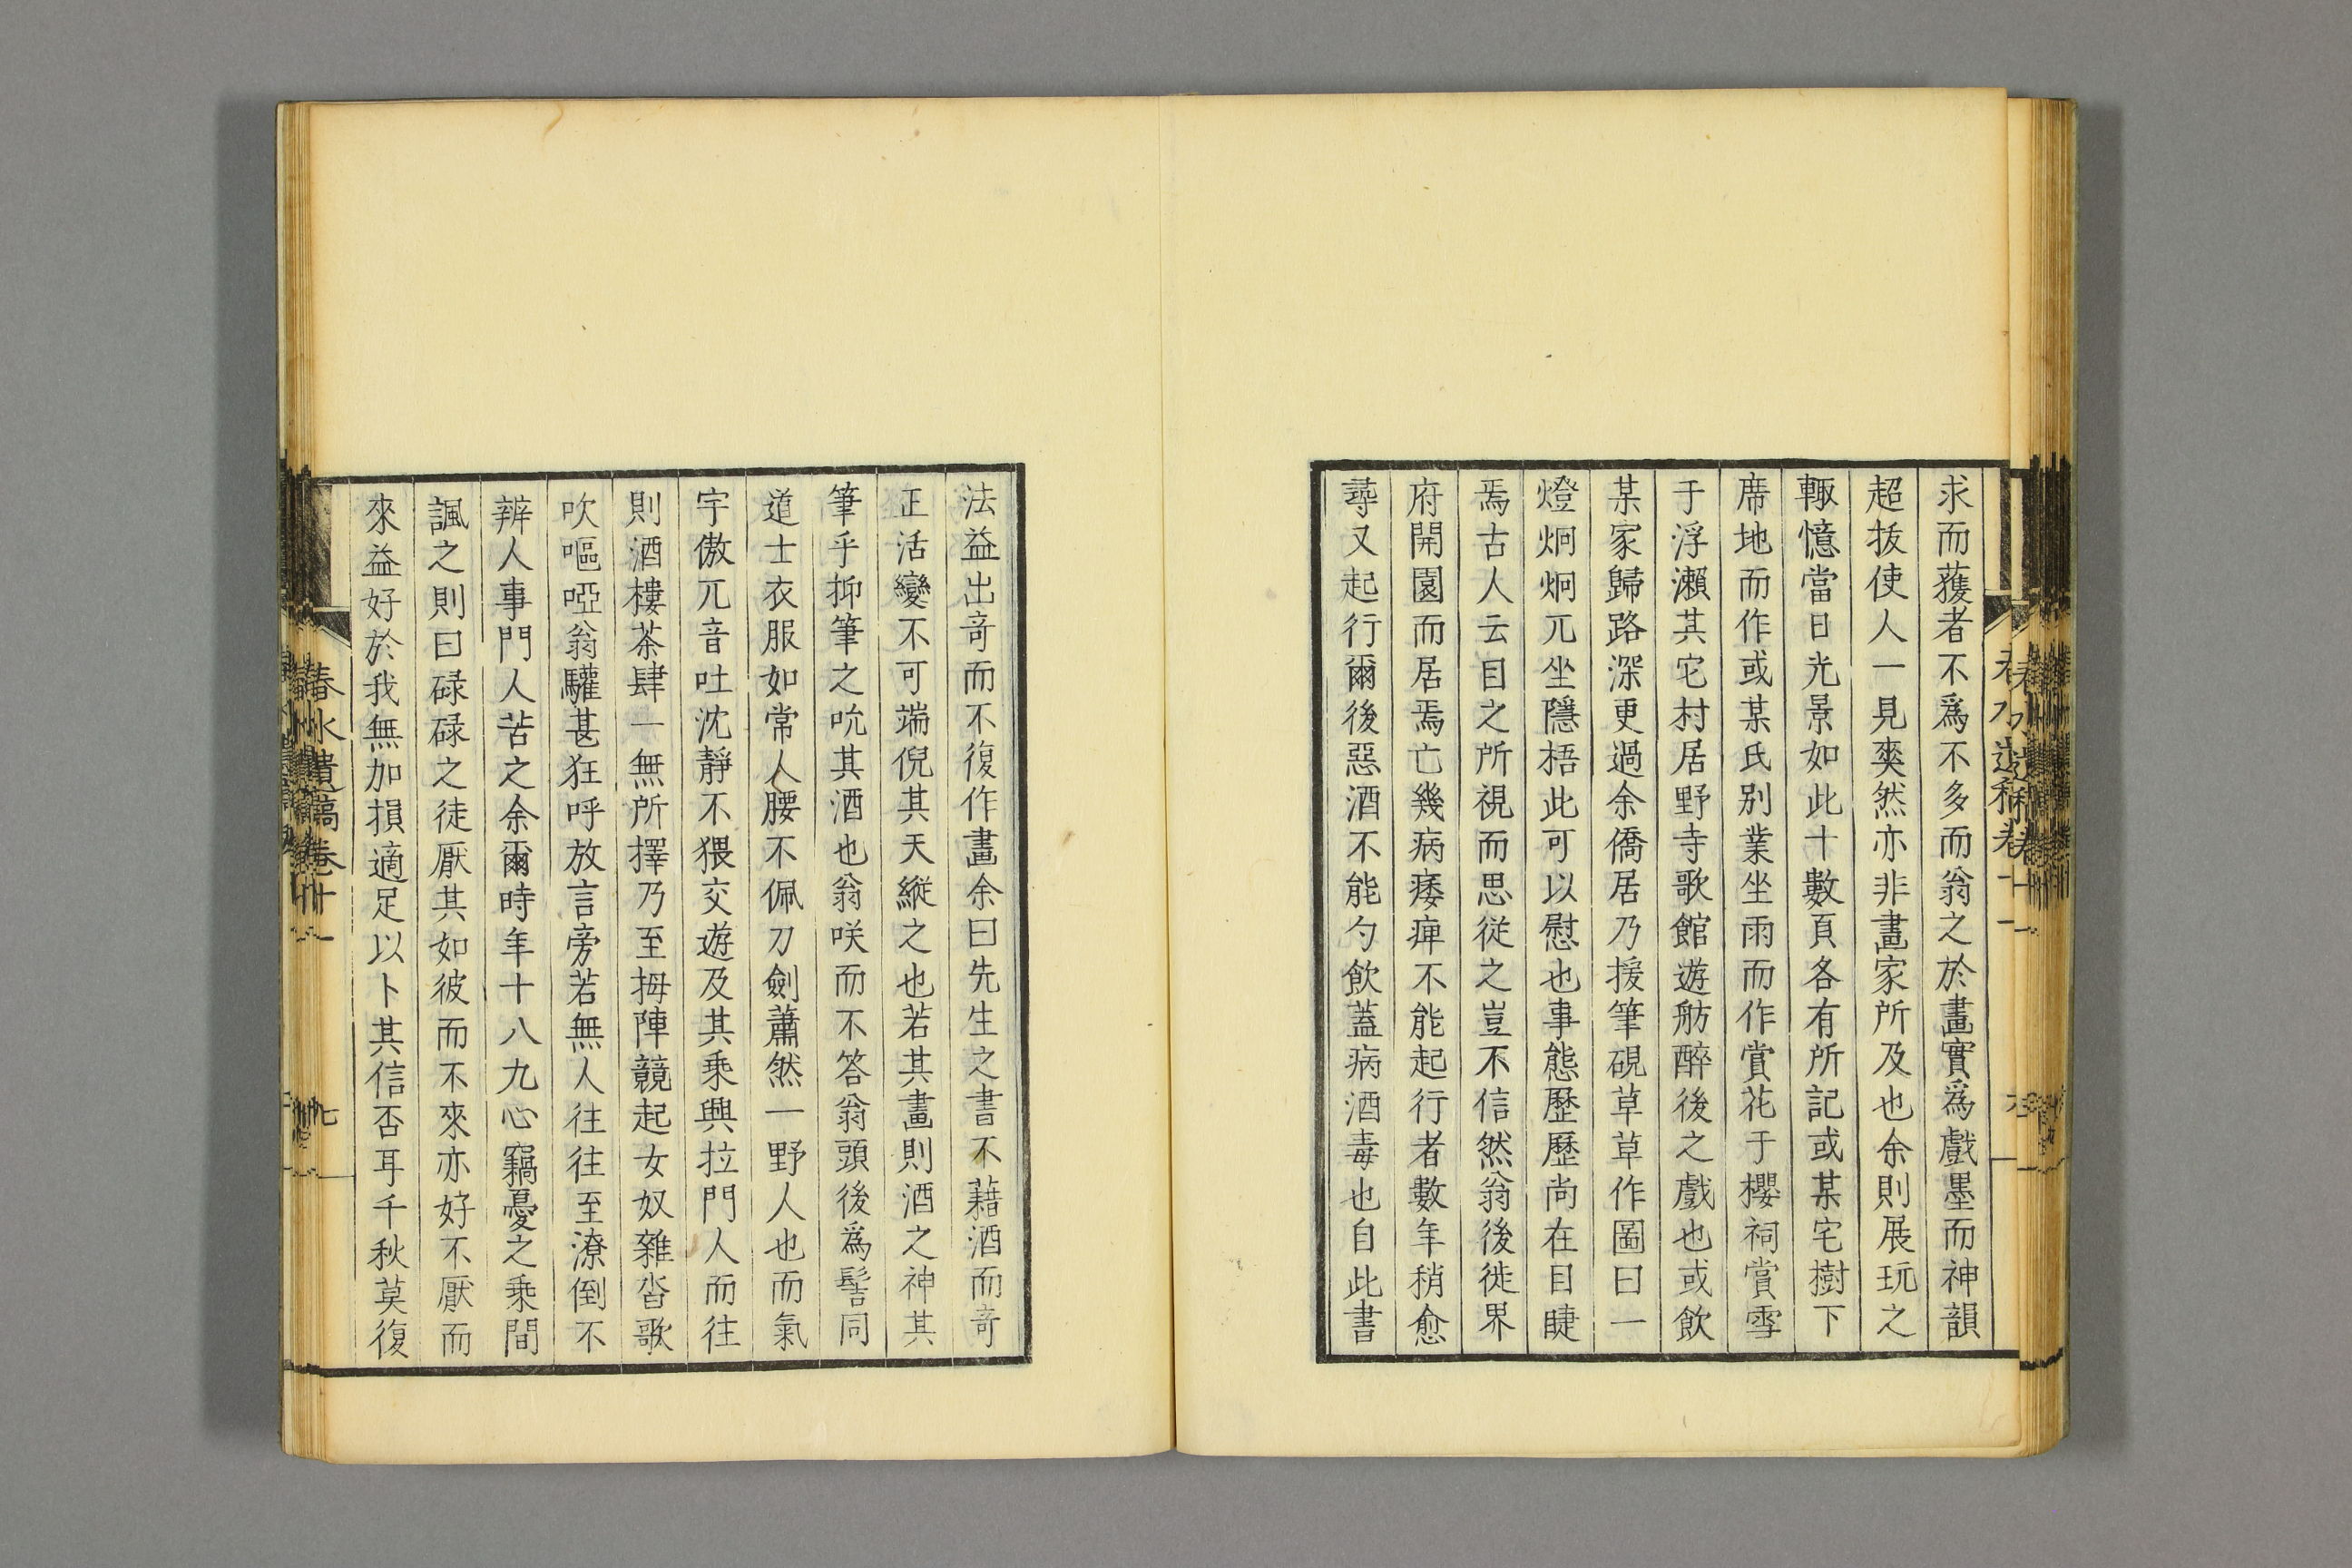 求而蒦者不爲不多而翁之於畫實爲戲墨而神韻
超拔使人一見爽然亦非畫家所及也余則展玩之
輙憶當日光景如此十數頁各有所記或某宅樹下
席地而作或某氏别業坐雨而作賞花于櫻祠賞雪
于浮瀨其它村居野寺歌館遊舫醉後之戲也或飲
某家歸路深更過余僑居乃援筆硯草草作圖曰一
燈炯炯兀坐隱梧此可以慰也事態歷歷尚在目睫
焉古人云目之所視而思從之豈不信然翁後徙界
府開園而居焉亡幾病痿痺不能起行者數年稍愈
蕁又起行爾後惡酒不能勺飲蓋病酒毒也自此書
法益出竒而不復作畫余曰先生之書不藉酒而竒
正活變不可端倪其天縱之也若其畫則酒之神其
筆乎抑筆之吮其酒也翁咲而不答翁頭後爲髻同
道士衣服如常人腰不佩刀劍蕭然一野人也而氣
宇傲兀音吐沈靜不猥交遊及其乘興拉門人而往
則酒樓茶肆一無所擇乃至拇陣競起女奴雜沓歌
吹嘔啞翁驩甚狂呼放言旁若無人往往至潦倒不
辨人事門人苦之余爾時年十八九心竊憂之乘間
諷之則曰碌碌之徒厭其如彼而不來亦好不厭而
來益好於我無加損適足以卜其信否耳千秋莫復
春水遺稿卷十一
七